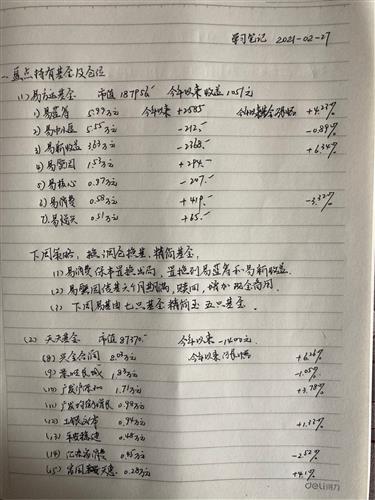 学习笔记 2021-02-27
一.盘点持有基金及仓位
(1) 易方达基金 市值187956.- 今年以来收益1051元
1) 易蓝筹 5.99万元 今年以来 +2585 今年以来基金涨幅 +4.23%
2) 易中小盘 5.55万元 -212.- -0.89%
3) 易新收益 3.63万元 -2368.- +6.34%
4) 易 1.53万元 +294.-
5) 易核心 0.37万元 -207.-
6) 易消费 0.58万元 +419.- -3.32%
7) 易 0.51万元 +65.-
下周策略: 换调仓换基, 精简基金,
(1) 易消费保本置换出局, 置换到易蓝筹和易新收益.
(2) 易 六个月 赎回, 备用.
(3) 下周易基由七只基金精简至五只基金.
(2) 天天基金 市值87370.- 今年以来 -1400元
(8) 兴全合润 2.03万元 今年以来 涨幅 +6.26%
(9) 景顺长城 1.83万元 -1.05%
(10) 广发沪 1.71万元 +3.78%
(11) 广发 增长 0.99万元
(12) 0.94万元 +1.33%
(13) 稳健 0.48万元
(14) 汇添富消费 0.45万元 -2.52%
(15) 富国 天惠 0.28万元 +4.1%
deli得力